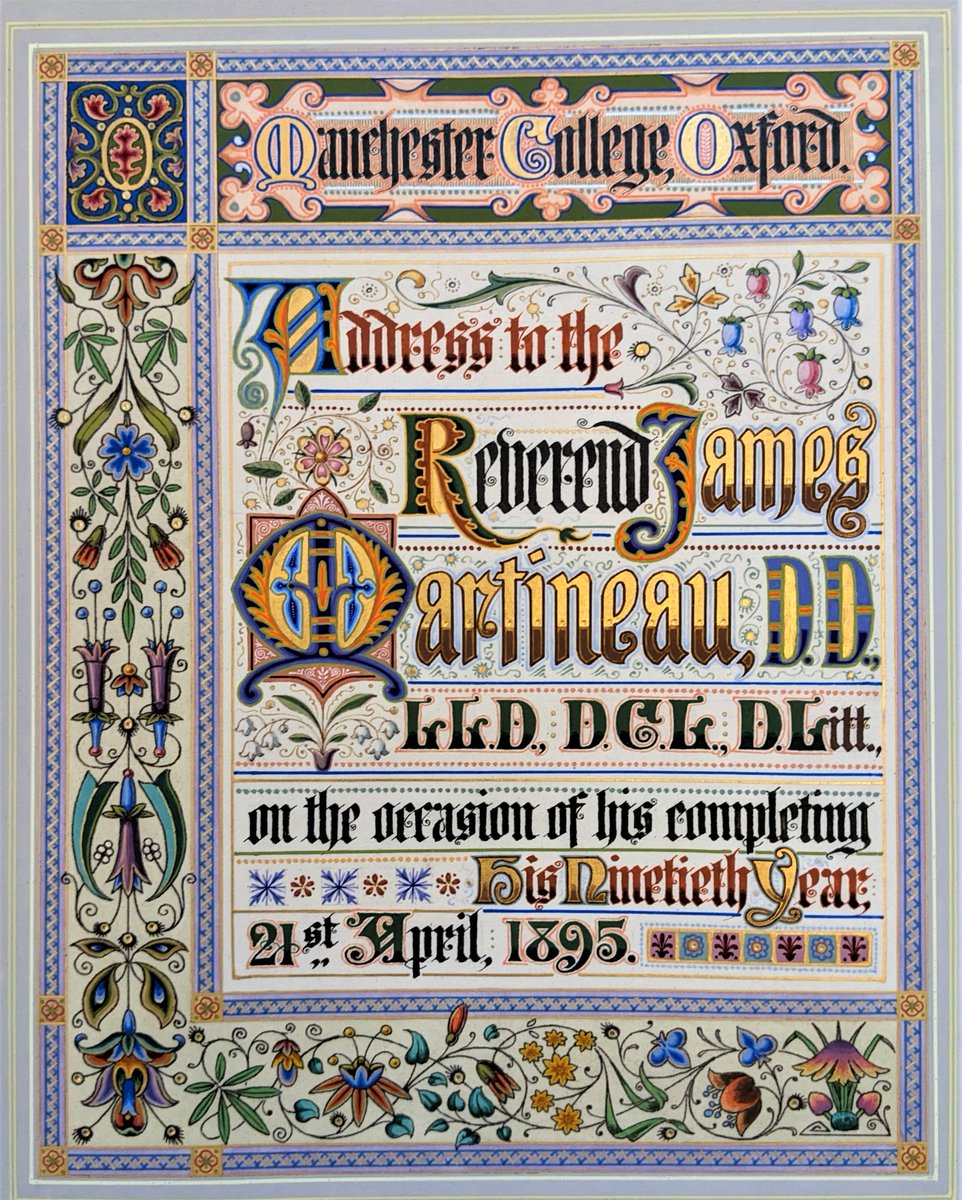 Manchester College, Oxford.
Address to the
Reverend James
Martineau, D.D.,
LL.D., D.C.L., D.Litt.,
on the occasion of his completing
His Ninetieth Year,
21st April, 1895.